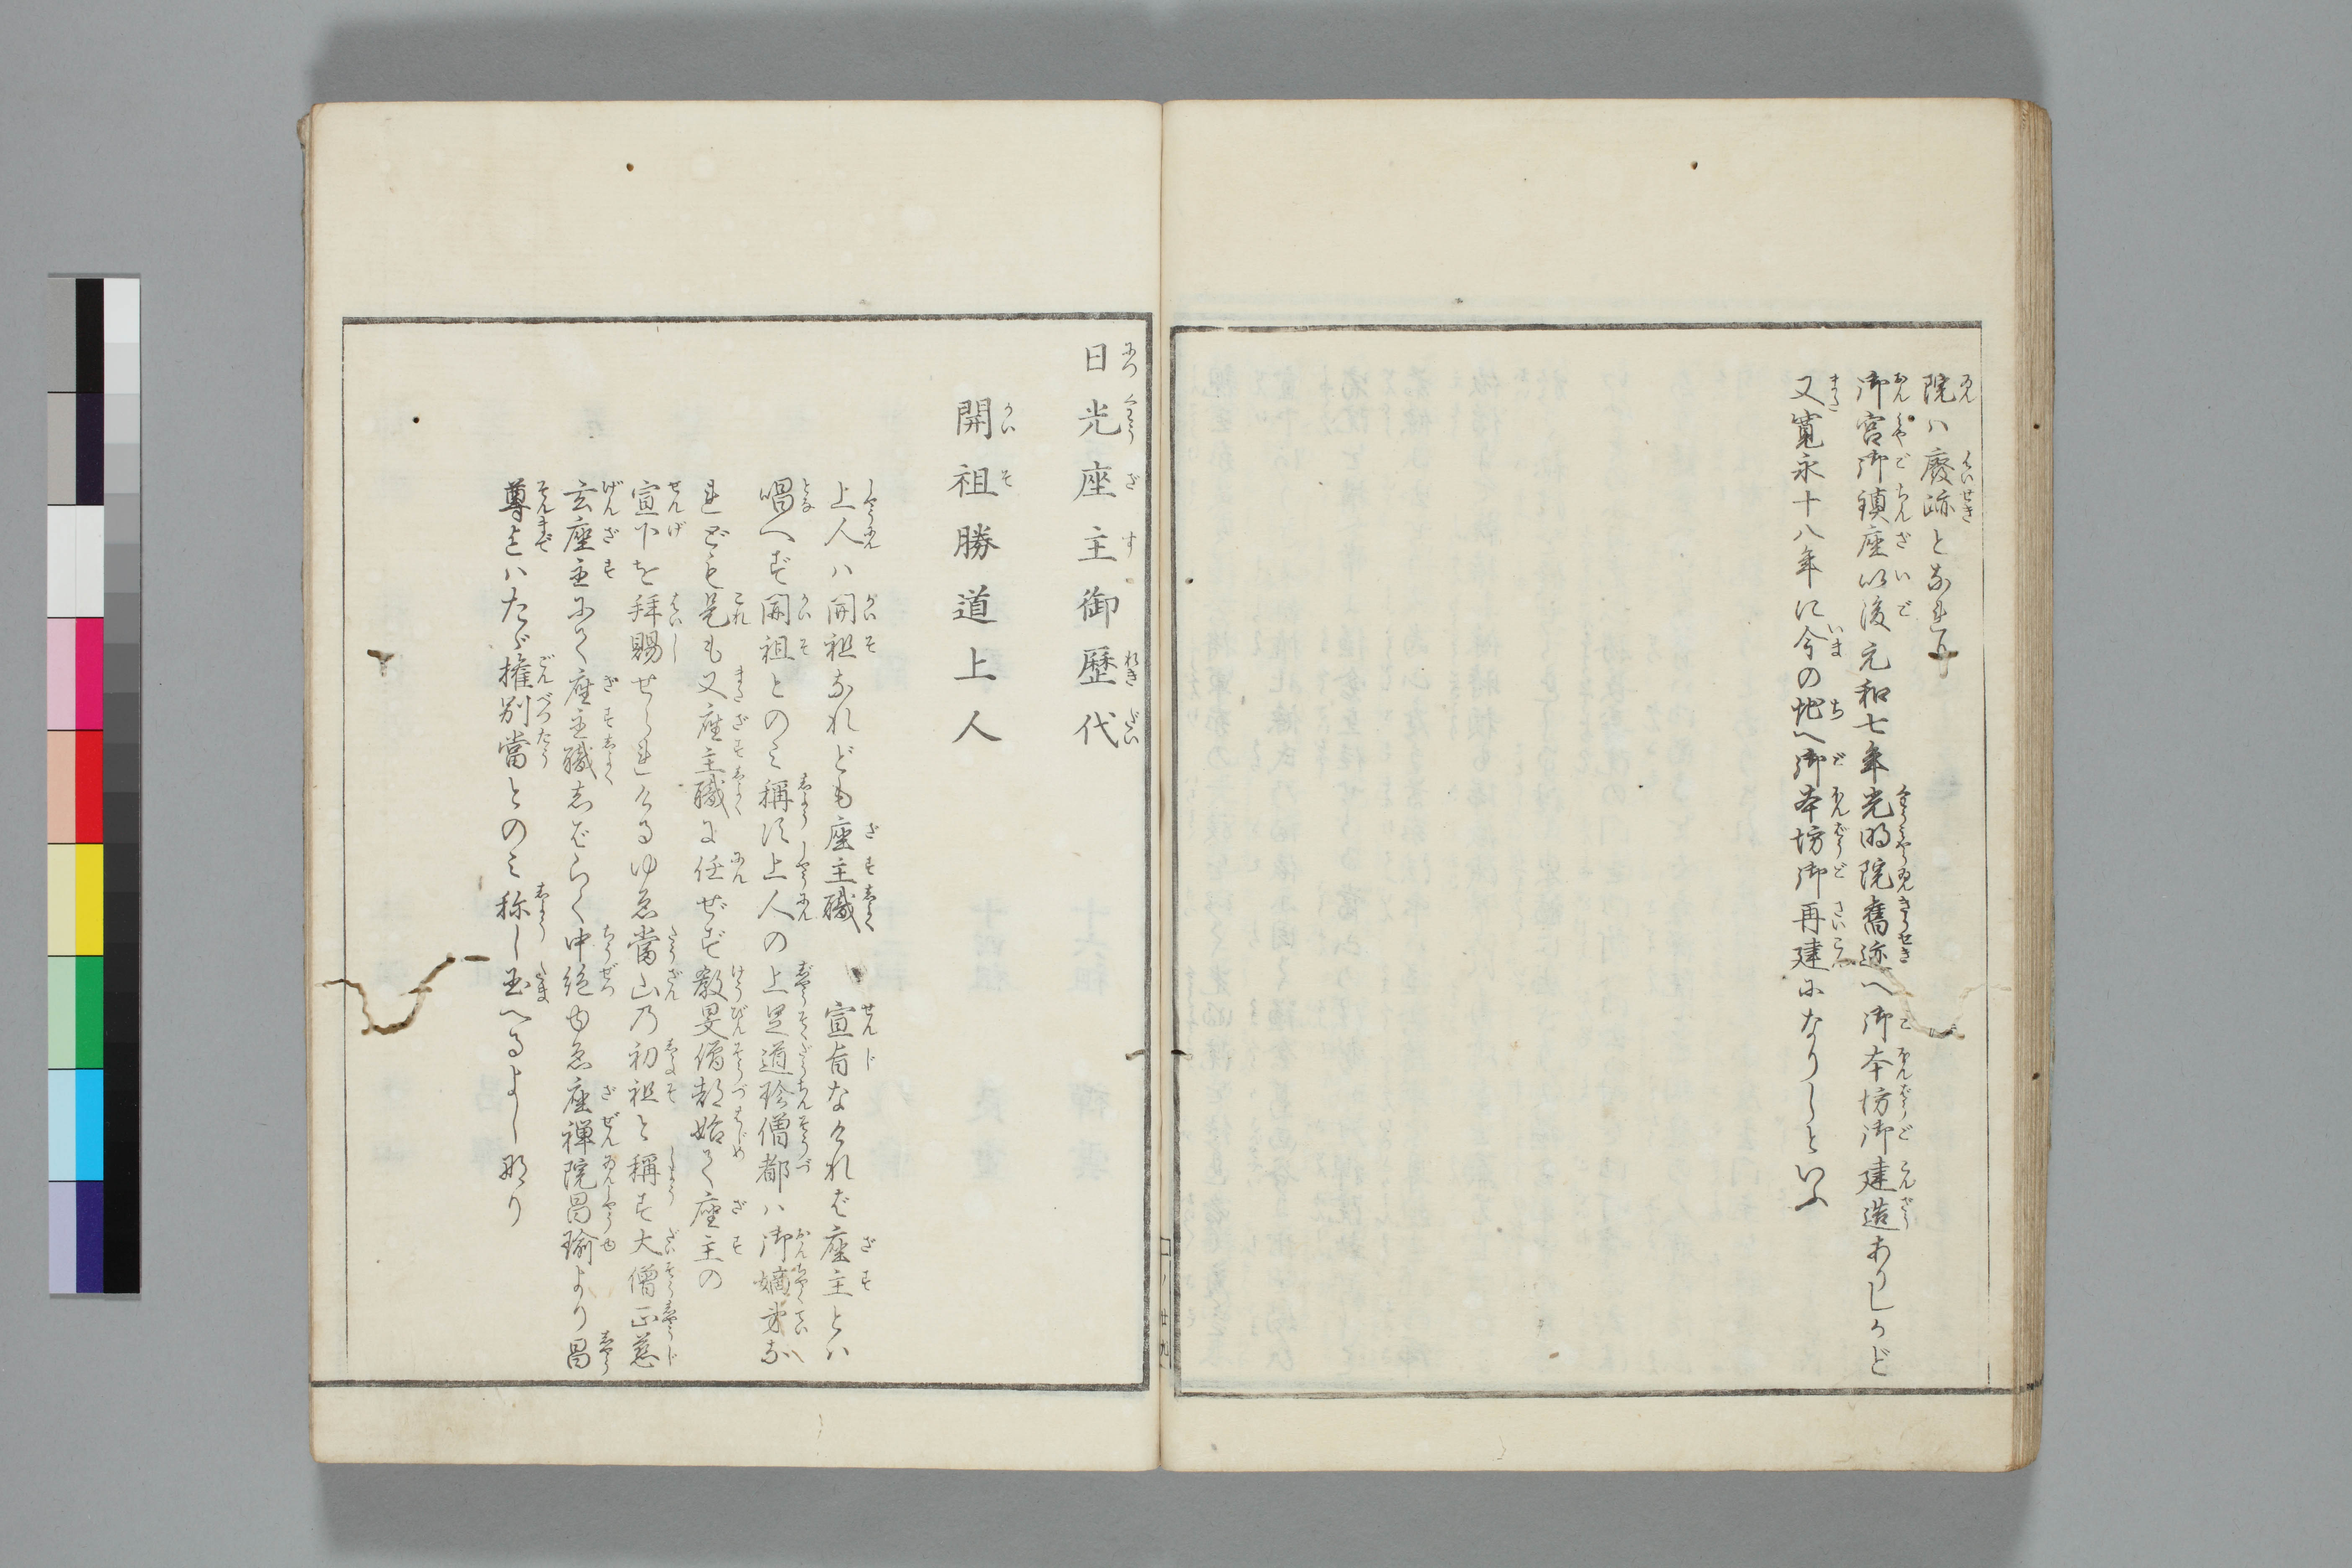 院ハ廢跡となれり
御宮御鎮座以後元和七年光明院舊迹へ御本坊御建造ありしかど
又寛永十八年に今の地へ御本坊御再建になりしといふ
日光座主御歴代
開祖勝道上人
上人ハ開祖なれども座主職 宣旨なけれバ座主とハ
唱へず開祖とのミ稱す上人の上足道珍僧都ハ御嫡弟な
れども是も又座主職に任ぜず教旻僧都始て座主の
宣下を拝賜せられけるゆゑ當山乃初祖と稱す大僧正慈
玄座主にて座主職志ばらく中絶ゆゑ座禅院昌瑜より昌
尊までハたゞ権別當とのミ称し玉へるよし那り
一ノ廿九